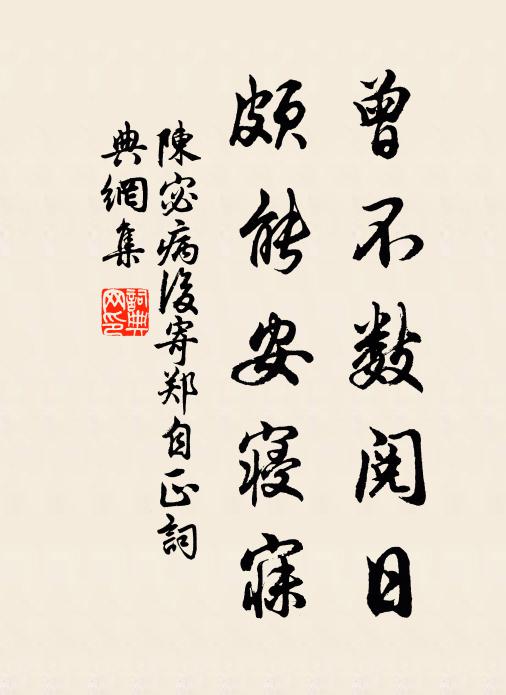 曾不数阅日
颇能安寝寐
陳宓病後寄郑自正詞
典網集
詞典
网印